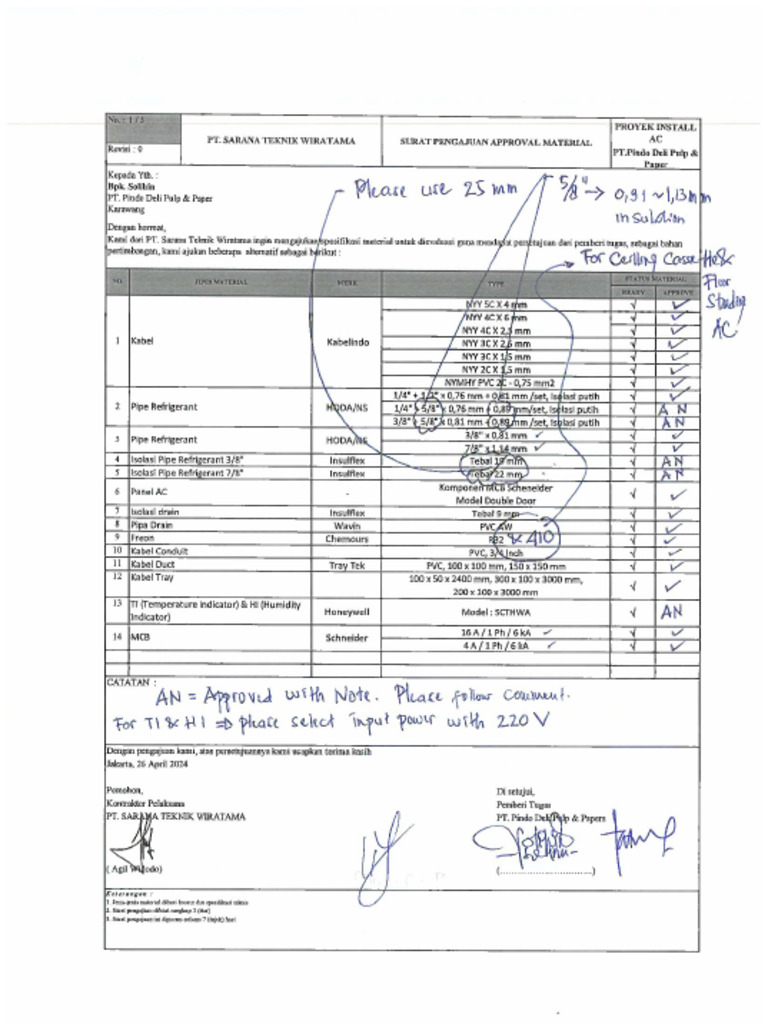 No. : 1 / 3
Revisi : 0
PT. SARANA TEKNIK WIRATAMA
SURAT PENGAJUAN APPROVAL MATERIAL
PROYEK INSTALL
AC
PT.Pindo Deli Pulp &
Paper
Kepada Yth. :
Bpk. Solihin
PT. Pindo Deli Pulp & Paper
Karawang
Please use 25 mm
5/8" → 0,91 ~ 1,13 mm
insulation
Dengan hormat,
Kami dari PT. Sarana Teknik Wiratama ingin mengajukan spesifikasi material untuk dievaluasi guna mendapat persetujuan dari pemberi tugas, sebagai bahan
pertimbangan, kami ajukan beberapa alternatif sebagai berikut :
For Ceiling Cassette &
Floor
Standing
AC
NO. JENIS MATERIAL MERK TYPE STATUS MATERIAL
READY APPROVE
1 Kabel Kabelindo
NYY 5C X 4 mm √ ✓
NYY 4C X 6 mm √ ✓
NYY 4C X 2,5 mm √ ✓
NYY 3C X 2,5 mm √ ✓
NYY 3C X 1,5 mm √ ✓
NYY 2C X 1,5 mm √ ✓
NYMHY PVC 2C - 0,75 mm2 √ ✓
2 Pipe Refrigerant HODA/NS
1/4" + 1/2" x 0,76 mm + 0,81 mm /set, Isolasi putih √ ✓
1/4" + 5/8" x 0,76 mm + 0,89 mm/set, Isolasi putih √ AN
3/8" + 5/8" x 0,81 mm + 0,89 mm/set, Isolasi putih √ AN
3 Pipe Refrigerant HODA/NS
3/8" x 0,81 mm ✓ √ ✓
7/8" x 1,14 mm ✓ √ ✓
4 Isolasi Pipe Refrigerant 3/8" Insulflex Tebal 19 mm √ AN
5 Isolasi Pipe Refrigerant 7/8" Insulflex Tebal 22 mm √ AN
6 Panel AC - Komponen MCB Scheneider
Model Double Door √ ✓
7 Isolasi drain Insulflex Tebal 9 mm √ ✓
8 Pipa Drain Wavin PVC AW √ ✓
9 Freon Chemours R32 & 410 √ ✓
10 Kabel Conduit PVC, 3/4 Inch √ ✓
11 Kabel Duct Tray Tek PVC, 100 x 100 mm, 150 x 150 mm √ ✓
12 Kabel Tray 100 x 50 x 2400 mm, 300 x 100 x 3000 mm,
200 x 100 x 3000 mm √ ✓
13 TI (Temperature Indicator) & HI (Humidity
Indicator) Honeywell Model : SCTHWA √ AN
14 MCB Schneider
16 A / 1 Ph / 6 kA ✓ √ ✓
4 A / 1 Ph / 6 kA ✓ √ ✓
CATATAN :
AN = Approved with Note. Please follow comment.
For TI & HI ⇒ please select input power with 220 V
Dengan pengajuan kami, atas persetujuannya kami ucapkan terima kasih
Jakarta, 26 April 2024
Pemohon,
Kontraktor Pelaksana
PT. SARANA TEKNIK WIRATAMA
( Agil Widodo)
Di setujui,
Pemberi Tugas
PT. Pindo Deli Pulp & Papers
(..............................)
Keterangan :